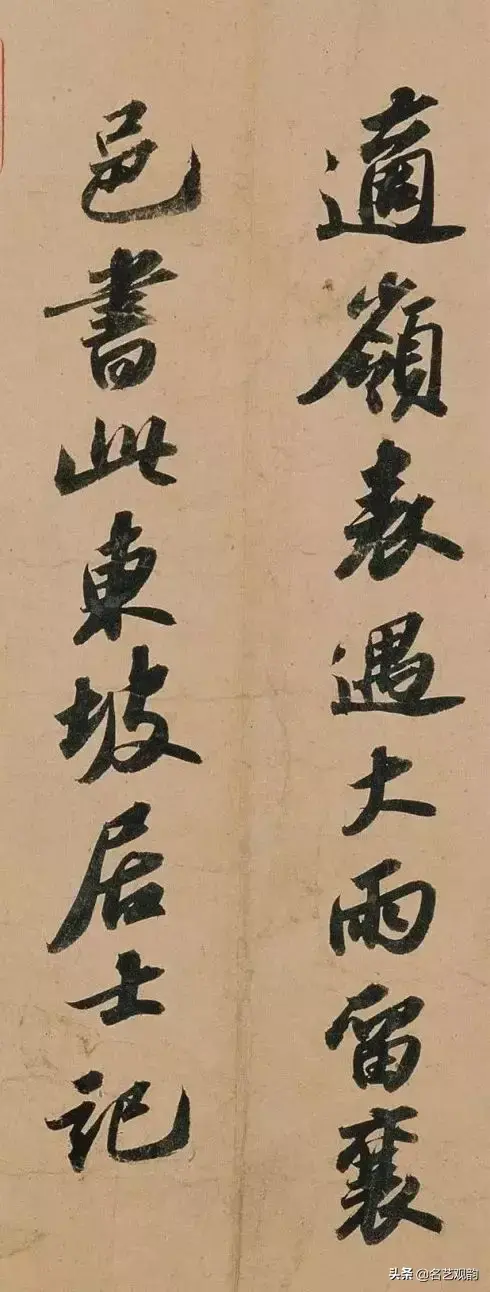 適嶺表遇大雨留襄
邑書此東坡居士記
头条 @名艺观韵